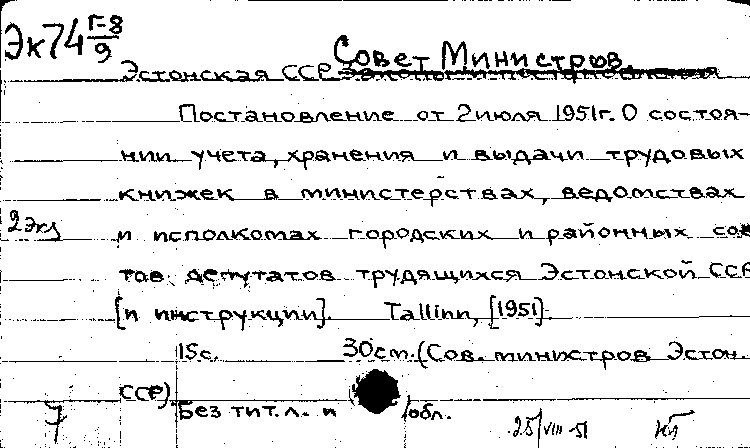 Эк74 Г-8/9
Совет Министров.
Эстонская ССР. законы и постановления
Постановление от 2 июля 1951г. О состоя-
нии учета, хранения и выдачи трудовых
книжек в министерствах, ведомствах
2 экз и исполкомах городских и районных сове
тов депутатов трудящихся Эстонской ССР
[и инструкции]. Tallinn, [1951].
15с. 30см. (Сов. министров Эстон.
ССР).
7 Без тит. л. и /обл. 25/VIII-51